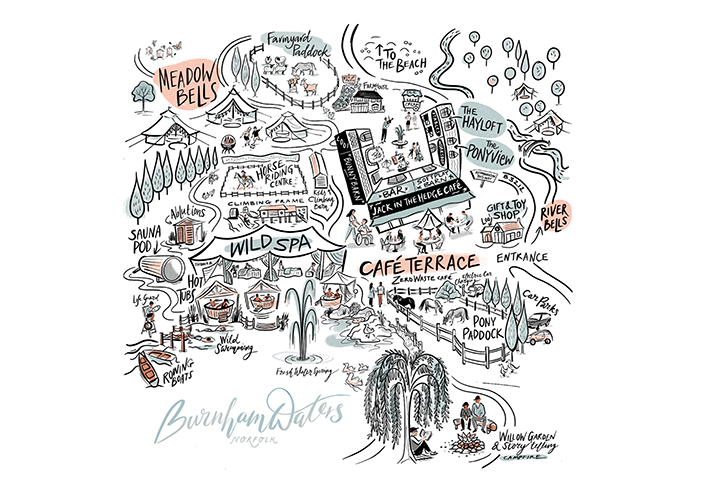 Farmyard
Paddock
↑ TO
THE BEACH
MEADOW
BELLS
FARMHOUSE
THE
HAYLOFT
THE
PONYVIEW
BUNNY BARN
BAR
SOFT PLAY
BARN
JACK IN THE HEDGE CAFÉ
HORSE
RIDING
CENTRE
CLIMBING FRAME
Kids
Climbing
Barn
B3511
Ablutions
SAUNA
POD
GIFT & TOY
SHOP
RIVER
BELLS
WILD SPA
CAFÉ TERRACE
ZERO WASTE CAFÉ
ENTRANCE
HOT
TUBS
Life Guard
Electric Car
Car Parks
PONY
PADDOCK
Wild
Swimming
ROWING
BOATS
Fresh Water Spring
Burnham Waters
NORFOLK
WILLOW GARDEN
& Story telling
CAMPFIRE